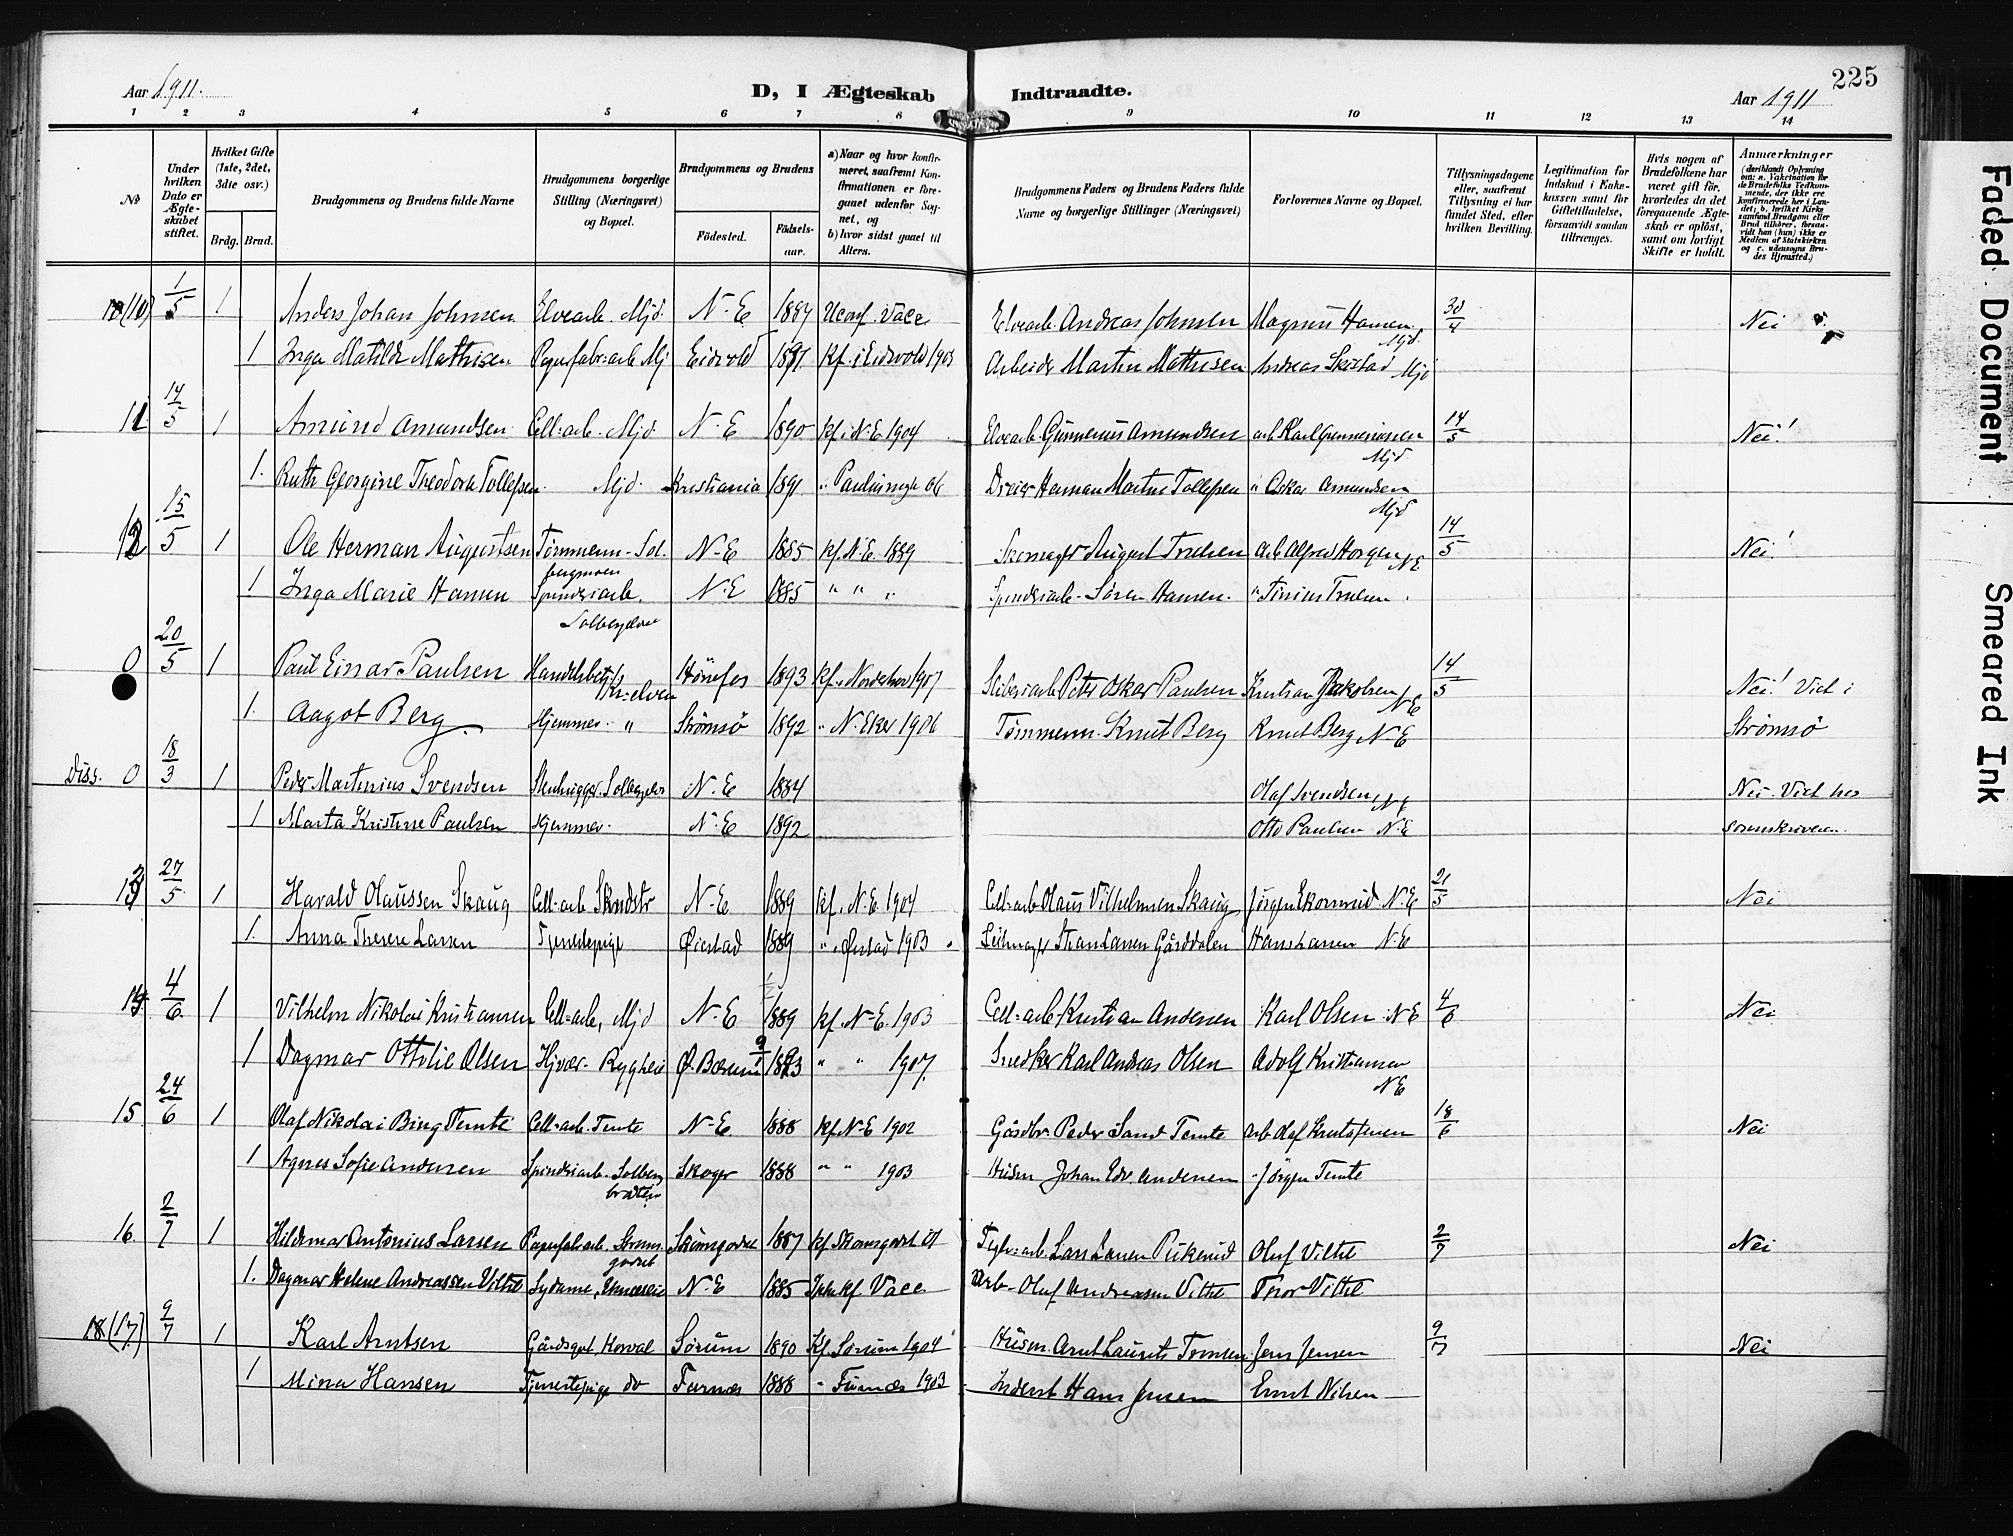 225
Aar 1911. D, I Ægteskab Indtraadte. Aar 1911
1 2 3 4 5 6 7 8 9 10 11 12 13 14
No
Under hvilken Dato er Ægteskabet stiftet.
Hvilket Gifte (1ste, 2det, 3die osv.)
Brdg. Brud.
Brudgommens og Brudens fulde Navne
Brudgommens borgerlige Stilling (Næringsvei) og Bopæl.
Brudgommens og Brudens
Fødested. Fødselsaar.
a) Naar og hvor konfirmeret, saafremt Konfirmationen er foregaaet udenfor Sognet, og
b) hvor sidst gaaet til Alters.
Brudgommens Faders og Brudens Faders fulde Navne og borgerlige Stillinger (Næringsvei)
Forlovernes Navne og Bopæl.
Tillysningsdagene eller, saafremt Tillysning ei har fundet Sted, efter hvilken Bevilling.
Legitimation for Indskud i Enkekassen samt for Giftetilladelse, forsaavidt saadan tiltrænges.
Hvis nogen af Brudefolkene har været gift før, hvorledes da det foregaaende Ægteskab er opløst, samt om lovligt Skifte er holdt.
Anmærkninger
10 (10) 1/5 1 Anders Johan Johnsen Elvearb. Mjd. N-E 1887 Ukonf. Vacc. Elvearb. Andreas Johnsen Magnus Hansen Mjd. 30/4 Nei
1 Inga Matilde Mathisen Papirfabr.arb Mj Eidsvold 1887 kf. i Eidsvold 1903 Arbeider Martin Mathisen Andreas Skistad Mjd
11 14/5 1 Amund Amundsen Cell=arb. Mjd. N-E 1890 kf. i N.E. 1904 Elvearb. Gunnerius Amundsen arb Karl Gunneriussen Mjd 14/5 Nei!
1. Ruth Georgine Theodora Tollefsen Mjd. Kristiania 1891 Dreier Herman Martin Tollefsen " Oskar Amundsen Mjd
12 15/5 1 Ole Herman Augustsen Tømmerm-Solbergmoen N-E 1885 kf N.E. 1899 Skomager August Truelsen arb Alfred Horgen NE 14/5 Nei!
1 Inga Marie Hansen Spinderiarb. Solbergelven N.E 1885 " " " Spinderiarb- Søren Hansen. " Truelsen
0 20/5 1 Paul Einar Paulsen Handelsbetj. Hönefos 1893 kf. Norderhov 1907 Sliberiarb Peter Oskar Paulsen Kristian Jakobsen NE 14/5 Nei! Viet i
1. Aagot Berg. Hjemmev. " Strømsö 1892 " N. Eker 1906 Tømmerm. Knut Berg Knut Berg N E Strømsö
Diss. 0 18/3 1 Peder Martinius Svendsen Stenhugger. Solbergelv N.E 1884 Olaf Svendsen NE Nei. Viet hos
1 Marta Kristine Paulsen Hjemmev. N.E 1892 Otto Paulsen N.E sorenskriveren.
13 27/5 1 Harald Olaussen Skaug Cell-arb N-E 1889 kf. N.E. 1904 Cell=arb Olaus Vilhelmsen Skaug Jørgen N.E 21/5 Nei
1. Anna Therese Larsen Tjenestepige Øiestad 1889 " Øiestad 1903 Larsen Gårddalen Hans Larsen N.E
14 4/6 1 Vilhelm Nikolai Kristiansen Cell=arb, Mjd N-E 1889 kf. N-E. 1903 Cell=arb. Kristian Andersen Karl Olsen N E 4/6 Nei
1 Dagmar Ottilie Olsen Hjvær. Ryghkoll Ø. Bærum 9/1 1893 " " 1907. Snedker Karl Andreas Olsen Adolf Kristiansen NE
15 24/6 1 Olaf Nikolai Bing Temte Cell=arb. Temte N-E. 1888 kf. N-E 1902 Gårdbr Peder Sand Temte arb Olaf Knutsen 18/6 Nei
1 Agnes Sofie Andersen Spinderiarb. Solberg Skoger 1888 " " 1903 Husm Johan Edv. Andersen " Jörgen Temte
16. 2/7 1 Hildemar Antonius Larsen Papirfabarb. Strømsgodset Strømsgodset 1887 kf Strømsgodset 01 Teglv=arb Lars Larsen Pukerud Oluf Viltil 2/7 Nei
1. Dagmar Helene Andreassen Viltil Sydame, N-E 1885 Ikke kf. Vacc. Arb- Oluf Andreasen Viltil Thor Viltil
18 (17) 9/7 1 Karl Arntsen Gårdsgut, Horvæl Sørum 1890 Kf. Sørum 1904 Husm. Arnt Laurits Tomsen Jens Jensen 9/7 Nei
1 Mina Hansen Tjenestepige do Furnæs 1888 " Furnæs 1903 Inderst Hans Jensen Ernst Nilsen
Faded Document Smeared Ink